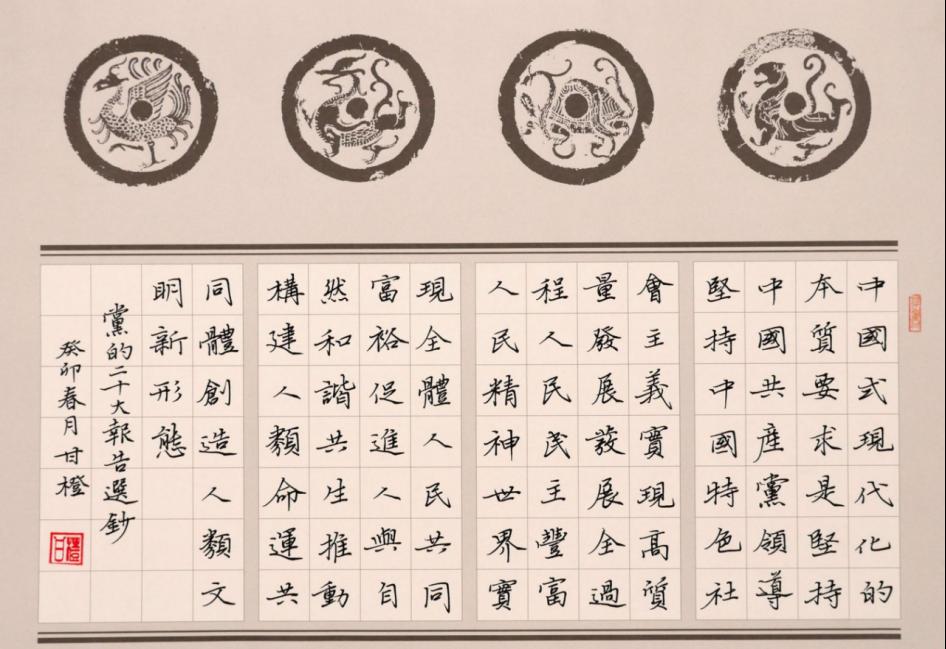 中國式現代化的
本質要求是堅持
中國共產黨領導
堅持中國特色社
會主義實現高質
量發展發展全過
程人民民主豐富
人民精神世界實
現全體人民共同
富裕促進人與自
然和諧共生推動
構建人類命運共
同體創造人類文
明新形態
黨的二十大報告選鈔
癸卯春月甘橙